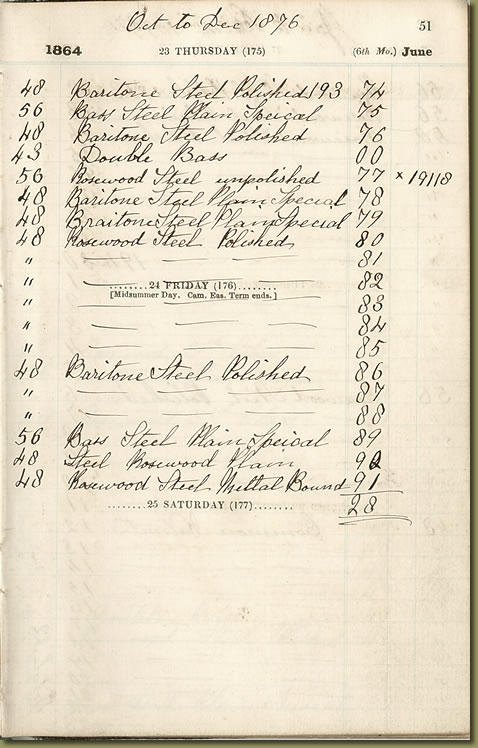 Oct to Dec 1876
51
1864 23 THURSDAY (175) (6th Mo.) June
48 Baritone Steel Polished 193 74
56 Bass Steel Plain Speical 75
48 Baritone Steel Polished 76
43 Double Bass 00
56 Rosewood Steel unpolished 77 x 19118
48 Baritone Steel Plain Special 78
48 Braitone Steel Plain Special 79
48 Rosewood Steel Polished 80
" — — — 81
" ........24 FRIDAY (176)........ 82
[Midsummer Day. Cam. Eas. Term ends.]
" — — — 83
" — — — 84
" — — — 85
48 Baritone Steel Polished 86
" — — — 87
" — — — 88
56 Bass Steel Plain Speical 89
48 Steel Rosewood Plain 90
48 Rosewood Steel Mettal Bound 91
........25 SATURDAY (177)........ 28